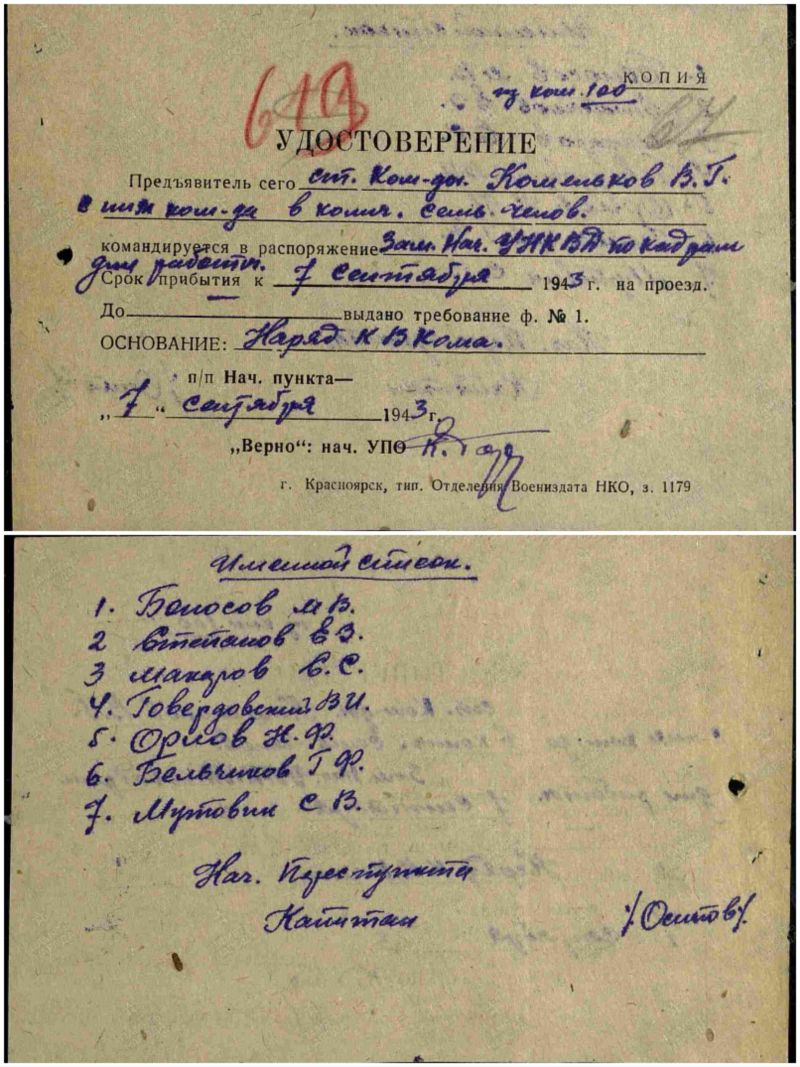 КОПИЯ
из ком. 100
619
67
УДОСТОВЕРЕНИЕ
Предъявитель сего ст. Ком-ды. Комельков В. Г.
с ним ком-да в колич. семь челов.
командируется в распоряжение Зам. Нач. УНКВД по кадрам
для работы.
Срок прибытия к 7 сентября 1943 г. на проезд.
До выдано требование ф. № 1.
ОСНОВАНИЕ: Наряд К В Кома.
п/п Нач. пункта—
„7“ сентября 1943 г.
„Верно“: нач. УПО
г. Красноярск, тип. Отделения Воениздата НКО, з. 1179
Именной список.
1. Болосов М В.
2 Степанов Е З.
3 Макаров С. С.
4. Говердовский В И.
5. Орлов Н. Ф.
6. Бельчиков Г Ф.
7. Мутовин С В.
Нач. Переспункта
Капитан /Осипов/.